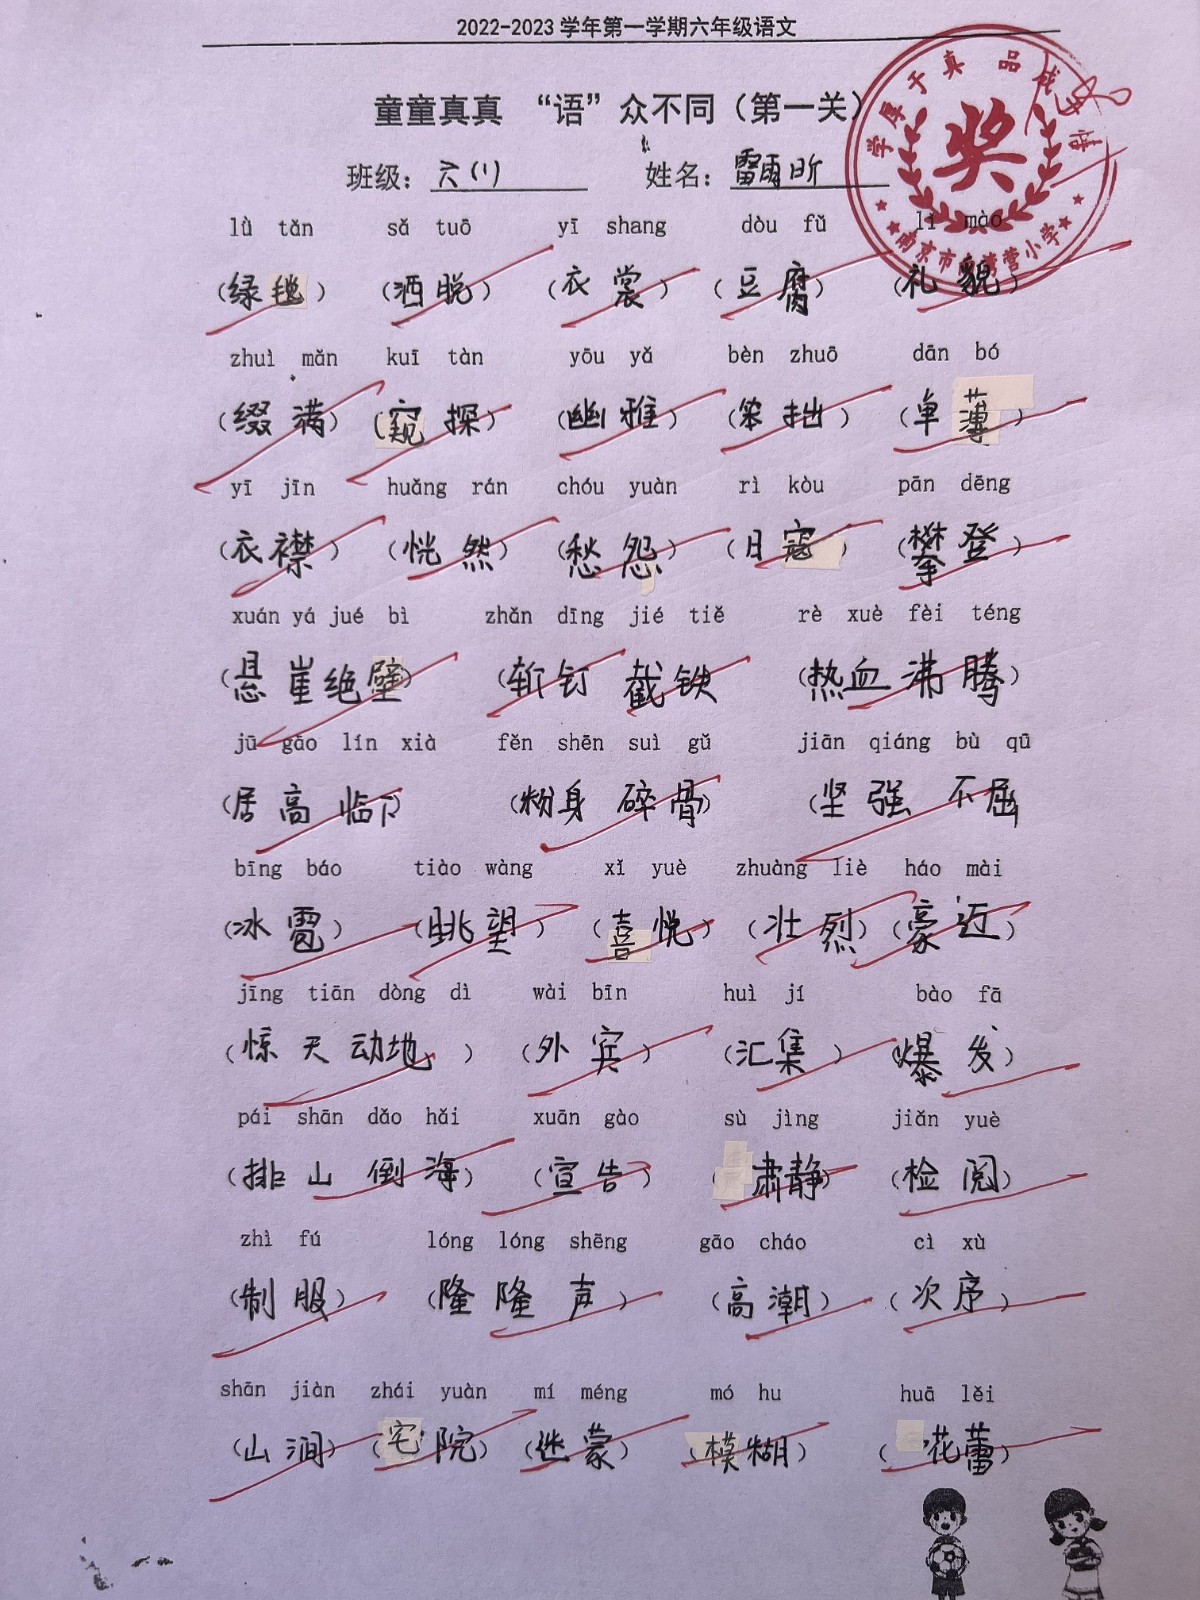 2022-2023 学年第一学期六年级语文
童童真真 “语”众不同（第一关）
班级：六(1) 姓名：雷雨昕
学厚于真 品成于情
奖
lǜ tǎn sǎ tuō yī shang dòu fǔ lǐ mào
（绿毯）（洒脱）（衣裳）（豆腐）（礼貌）
zhuì mǎn kuī tàn yōu yǎ bèn zhuō dān bó
（缀满）（窥探）（幽雅）（笨拙）（单薄）
yī jīn huǎng rán chóu yuàn rì kòu pān dēng
（衣襟）（恍然）（愁怨）（日寇）（攀登）
xuán yá jué bì zhǎn dīng jié tiě rè xuè fèi téng
（悬崖绝壁）（斩钉截铁）（热血沸腾）
jū gāo lín xià fěn shēn suì gǔ jiān qiáng bù qū
（居高临下）（粉身碎骨）（坚强不屈）
bīng báo tiào wàng xǐ yuè zhuàng liè háo mài
（冰雹）（眺望）（喜悦）（壮烈）（豪迈）
jīng tiān dòng dì wài bīn huì jí bào fā
（惊天动地）（外宾）（汇集）（爆发）
pái shān dǎo hǎi xuān gào sù jìng jiǎn yuè
（排山倒海）（宣告）（肃静）（检阅）
zhì fú lóng lóng shēng gāo cháo cì xù
（制服）（隆隆声）（高潮）（次序）
shān jiàn zhái yuàn mí méng mó hu huā lěi
（山涧）（宅院）（迷蒙）（模糊）（花蕾）